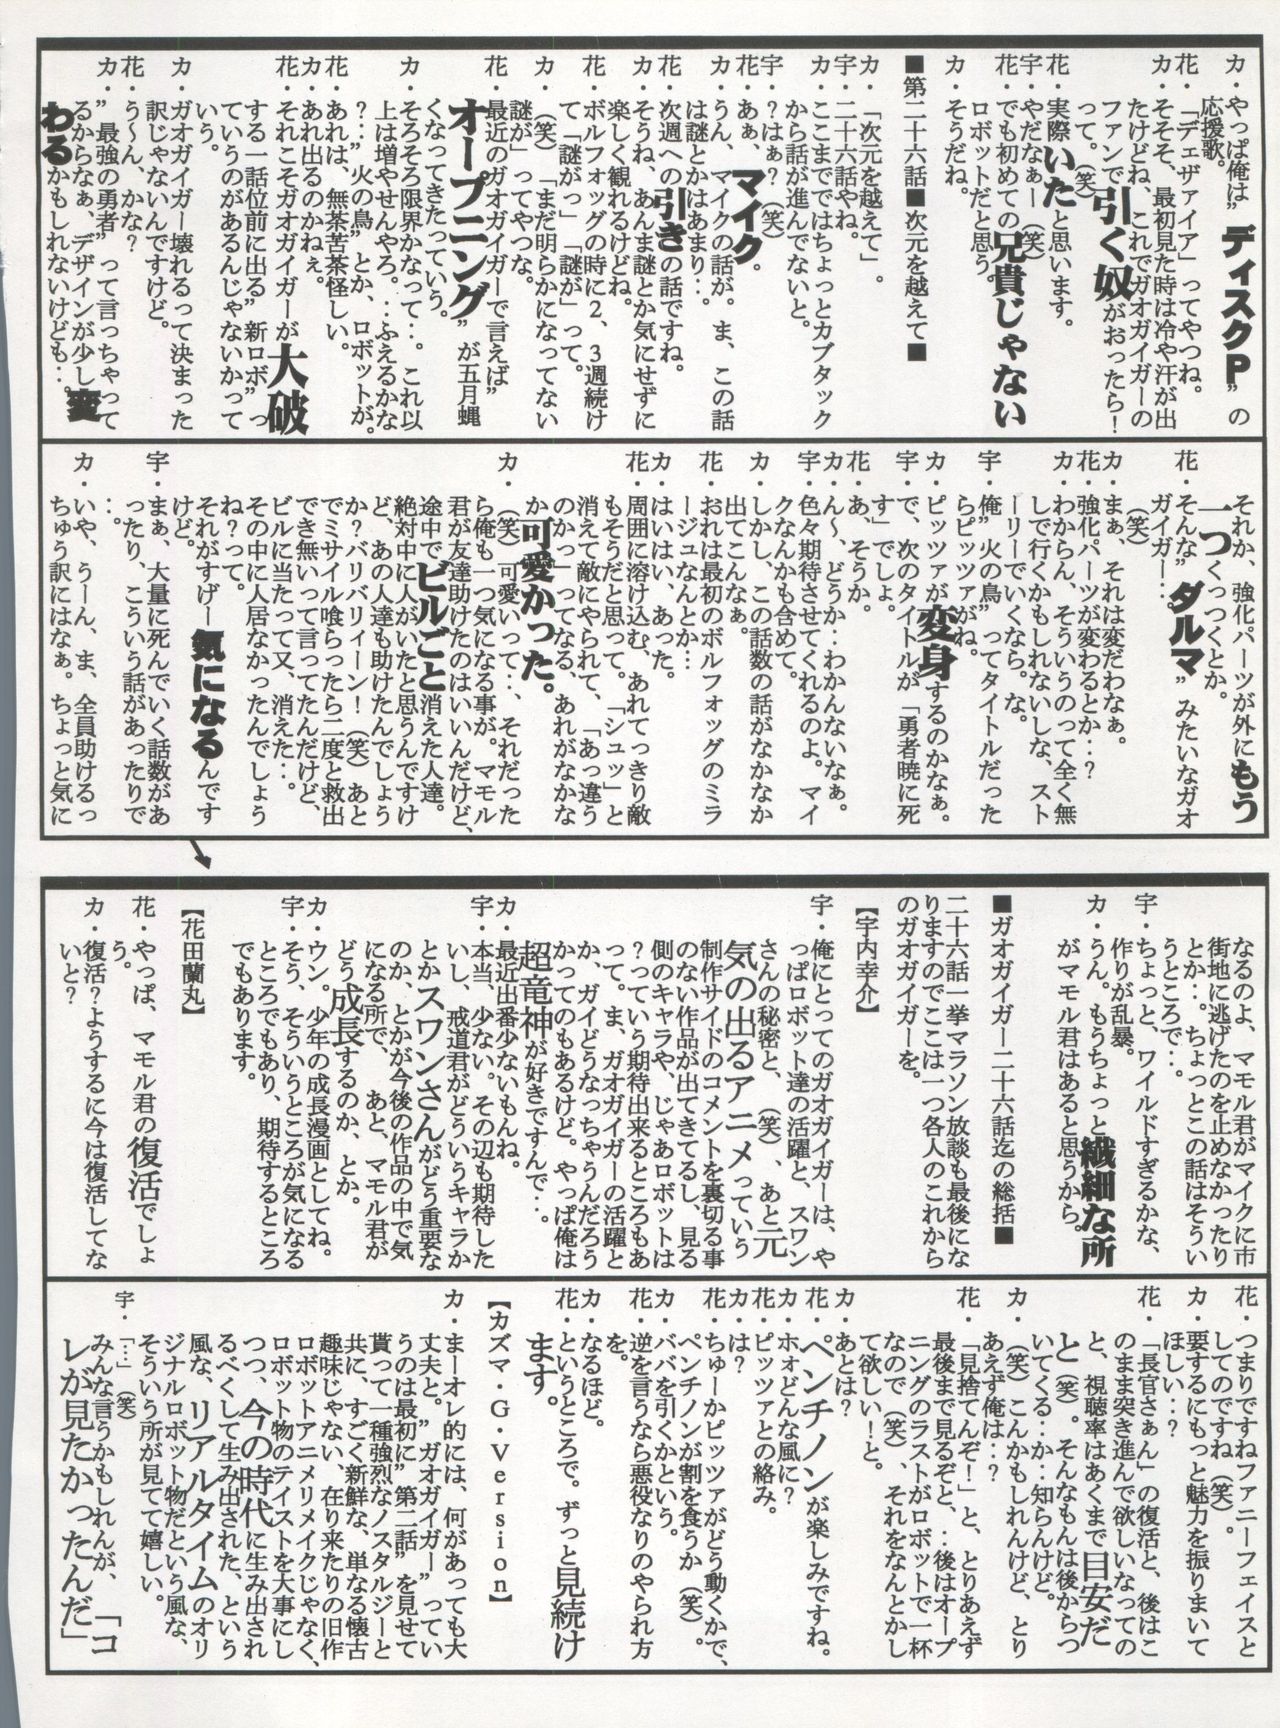 カ・やっぱ俺は”ディスクP”の
応援歌。
花・「デェザァイア」ってやつね。
カ・そそそ、最初見た時は冷や汗が出
たけどね、これでガオガイガーの
ファンで引く奴がおったら！
って。（笑）
花・実際いたと思います。
宇・やだなぁー（笑）
花・でも初めての兄貴じゃない
ロボットだと思う。
カ・そうだね。
■第二十六話■次元を越えて■
カ・「次元を越えて」。
宇・二十六話やね。
カ・ここまでではちょっとカブタック
から話が進んでないと。
宇・？はぁ？（笑）
花・あぁ、マイク。
カ・うん、マイクの話が。ま、この話
は謎とかはあまり‥。
花・次週への引きの話ですね。
カ・そうね、あんま謎とか気にせずに
楽しく観れるけどね。
花・ボルフォッグの時に２、３週続け
て「謎がっ」「謎が」って。
カ・（笑）「まだ明らかになってない
謎が」ってやつな。
花・最近のガオガイガーで言えば”
オープニング”が五月蝿
くなってきたっていう。
カ・そろそろ限界かなって‥。これ以
上は増やせんやろ。‥ふえるかな
？‥”火の鳥”とか、ロボットが。
花・あれは、無茶苦茶怪しい。
カ・あれ出るのかねぇ。
花・それこそガオガイガーが大破
する一話位前に出る”新ロボ”っ
ていうのがあるんじゃないかって
いう。
カ・ガオガイガー壊れるって決まった
訳じゃないんですけど。
花・う〜ん、かな？
カ・”最強の勇者”って言っちゃって
るからなぁ、デザインが少し変
わるかもしれないけども‥。
それか、強化パーツが外にもう
一つくっつくとか。
花・そんな”ダルマ”みたいなガオ
ガイガー‥。
（笑）
カ・まぁ、それは変だわなぁ。
花・強化パーツが変わるとか‥？
カ・わからん、そういうのって全く無
しで行くかもしれないしな、スト
ーリーでいくなら。な。
宇・俺”火の鳥”ってタイトルだった
らピッツァがね。
カ・ピッツァが変身するのかなぁ。
宇・で、次のタイトルが「勇者暁に死
す」でしょ。
花・あ、そうか。
カ・ん〜、どうか‥わかんないなぁ。
宇・色々期待させてくれるのよ。マイ
クなんかも含めて。
カ・しかし、この話数の話がなかなか
出てこんなぁ。
花・おれは最初のボルフォッグのミラ
ージュなんとか…
カ・はいはい、あった。
花・周囲に溶け込む、あれてっきり敵
もそうだと思って。「シュッ」と
消えて敵にやられて、「あっ違う
のかっ」ってなる、あれがなかな
か可愛かった。
カ・（笑）可愛いって‥、それだった
ら俺も一つ気になる事が。マモル
君が友達助けたのはいいんだけど、
途中でビルごと消えた人達。
絶対中に人がいたと思うんですけ
ど、あの人達も助けたんでしょう
か？バリバリィーン！（笑）あと
でミサイル喰らったら二度と救出
でき無いって言ってたんだけど、
ビルに当たって又、消えた‥
その中に人居なかったんでしょう
ね？って。
それがすげー気になるんです
けど。
宇・まぁ、大量に死んでいく話数があ
ったり、こういう話があったりで
‥。
カ・いや、うーん、ま、全員助けるっ
ちゅう訳にはなぁ。ちょっと気に
なるのよ、マモル君がマイクに市
街地に逃げたのを止めなかったり
とか‥。ちょっとこの話はそうい
うところで‥。
宇・ちょっと、ワイルドすぎるかな、
作りが乱暴。
カ・うん。もうちょっと繊細な所
がマモル君はあると思うから。
■ガオガイガー二十六話迄の総括■
二十六話一挙マラソン放談も最後にな
りますのでここは一つ各人のこれから
のガオガイガーを。
【宇内幸介】
宇・俺にとってのガオガイガーは、や
っぱロボット達の活躍と、スワン
さんの秘密と、（笑）、あと元
気の出るアニメっていう
制作サイドのコメントを裏切る事
のない作品が出てきてるし、見る
側のキャラや、じゃあロボットは
？っていう期待出来るところもあ
って。ま、ガオガイガーの活躍と
か、ガイどうなっちゃうんだろう
かってのもあるけど。やっぱ俺は
超竜神が好きですんで‥。
カ・最近出番少ないもんね。
宇・本当、少ない。その辺も期待した
いし、戒道君がどういうキャラか
とかスワンさんがどう重要な
のか、とかが今後の作品の中で気
になる所で、あと、マモル君が
どう成長するのか、とか。
カ・ウン。少年の成長漫画としてね。
宇・そう、そういうところが気になる
ところでもあり、期待するところ
でもあります。
【花田蘭丸】
花・やっぱ、マモル君の復活でしょ
う。
カ・復活？ようするに今は復活してな
いと？
花・つまりですねファニーフェイスと
してのですね（笑）。
カ・要するにもっと魅力を振りまいて
ほしい‥？
花・「長官さぁん」の復活と、後はこ
のまま突き進んで欲しいなっての
と、視聴率はあくまで目安だ
と（笑）。そんなもんは後からつ
いてくる‥か‥知らんけど。
カ・（笑）こんかもしれんけど、とり
あえず俺は‥？
花・「見捨てんぞ！」と、とりあえず
最後まで見るぞと、‥後はオープ
ニングのラストがロボットで一杯
なので（笑）、それをなんとかし
て欲しい！と。
カ・あとは？
花・ペンチノンが楽しみですね。
カ・ホォどんな風に？
花・ピッツァとの絡み。
カ・は？
花・ちゅーかピッツァがどう動くかで、
ペンチノンが割を食うか（笑）。
カ・ババを引くかという。
花・逆を言うなら悪役なりのやられ方
を。
カ・なるほど。
花・というところで。ずっと見続け
ます。
【カズマ・G・Version】
カ・まーオレ的には、何があっても大
丈夫と。”ガオガイガー”ってい
うのは最初に”第二話”を見せて
貰って一種強烈なノスタルジーと
共に、すごく新鮮な、単なる懐古
趣味じゃない、在り来たりの旧作
ロボットアニメリメイクじゃなく、
ロボット物のテイストを大事にし
つつ、今の時代に生み出され
るべくして生み出された、という
風な、リアルタイムのオリ
ジナルロボット物だという風な、
そういう所が見てて嬉しい。
宇・「…」（笑）
みんな言うかもしれんが、「コ
レが見たかったんだ」